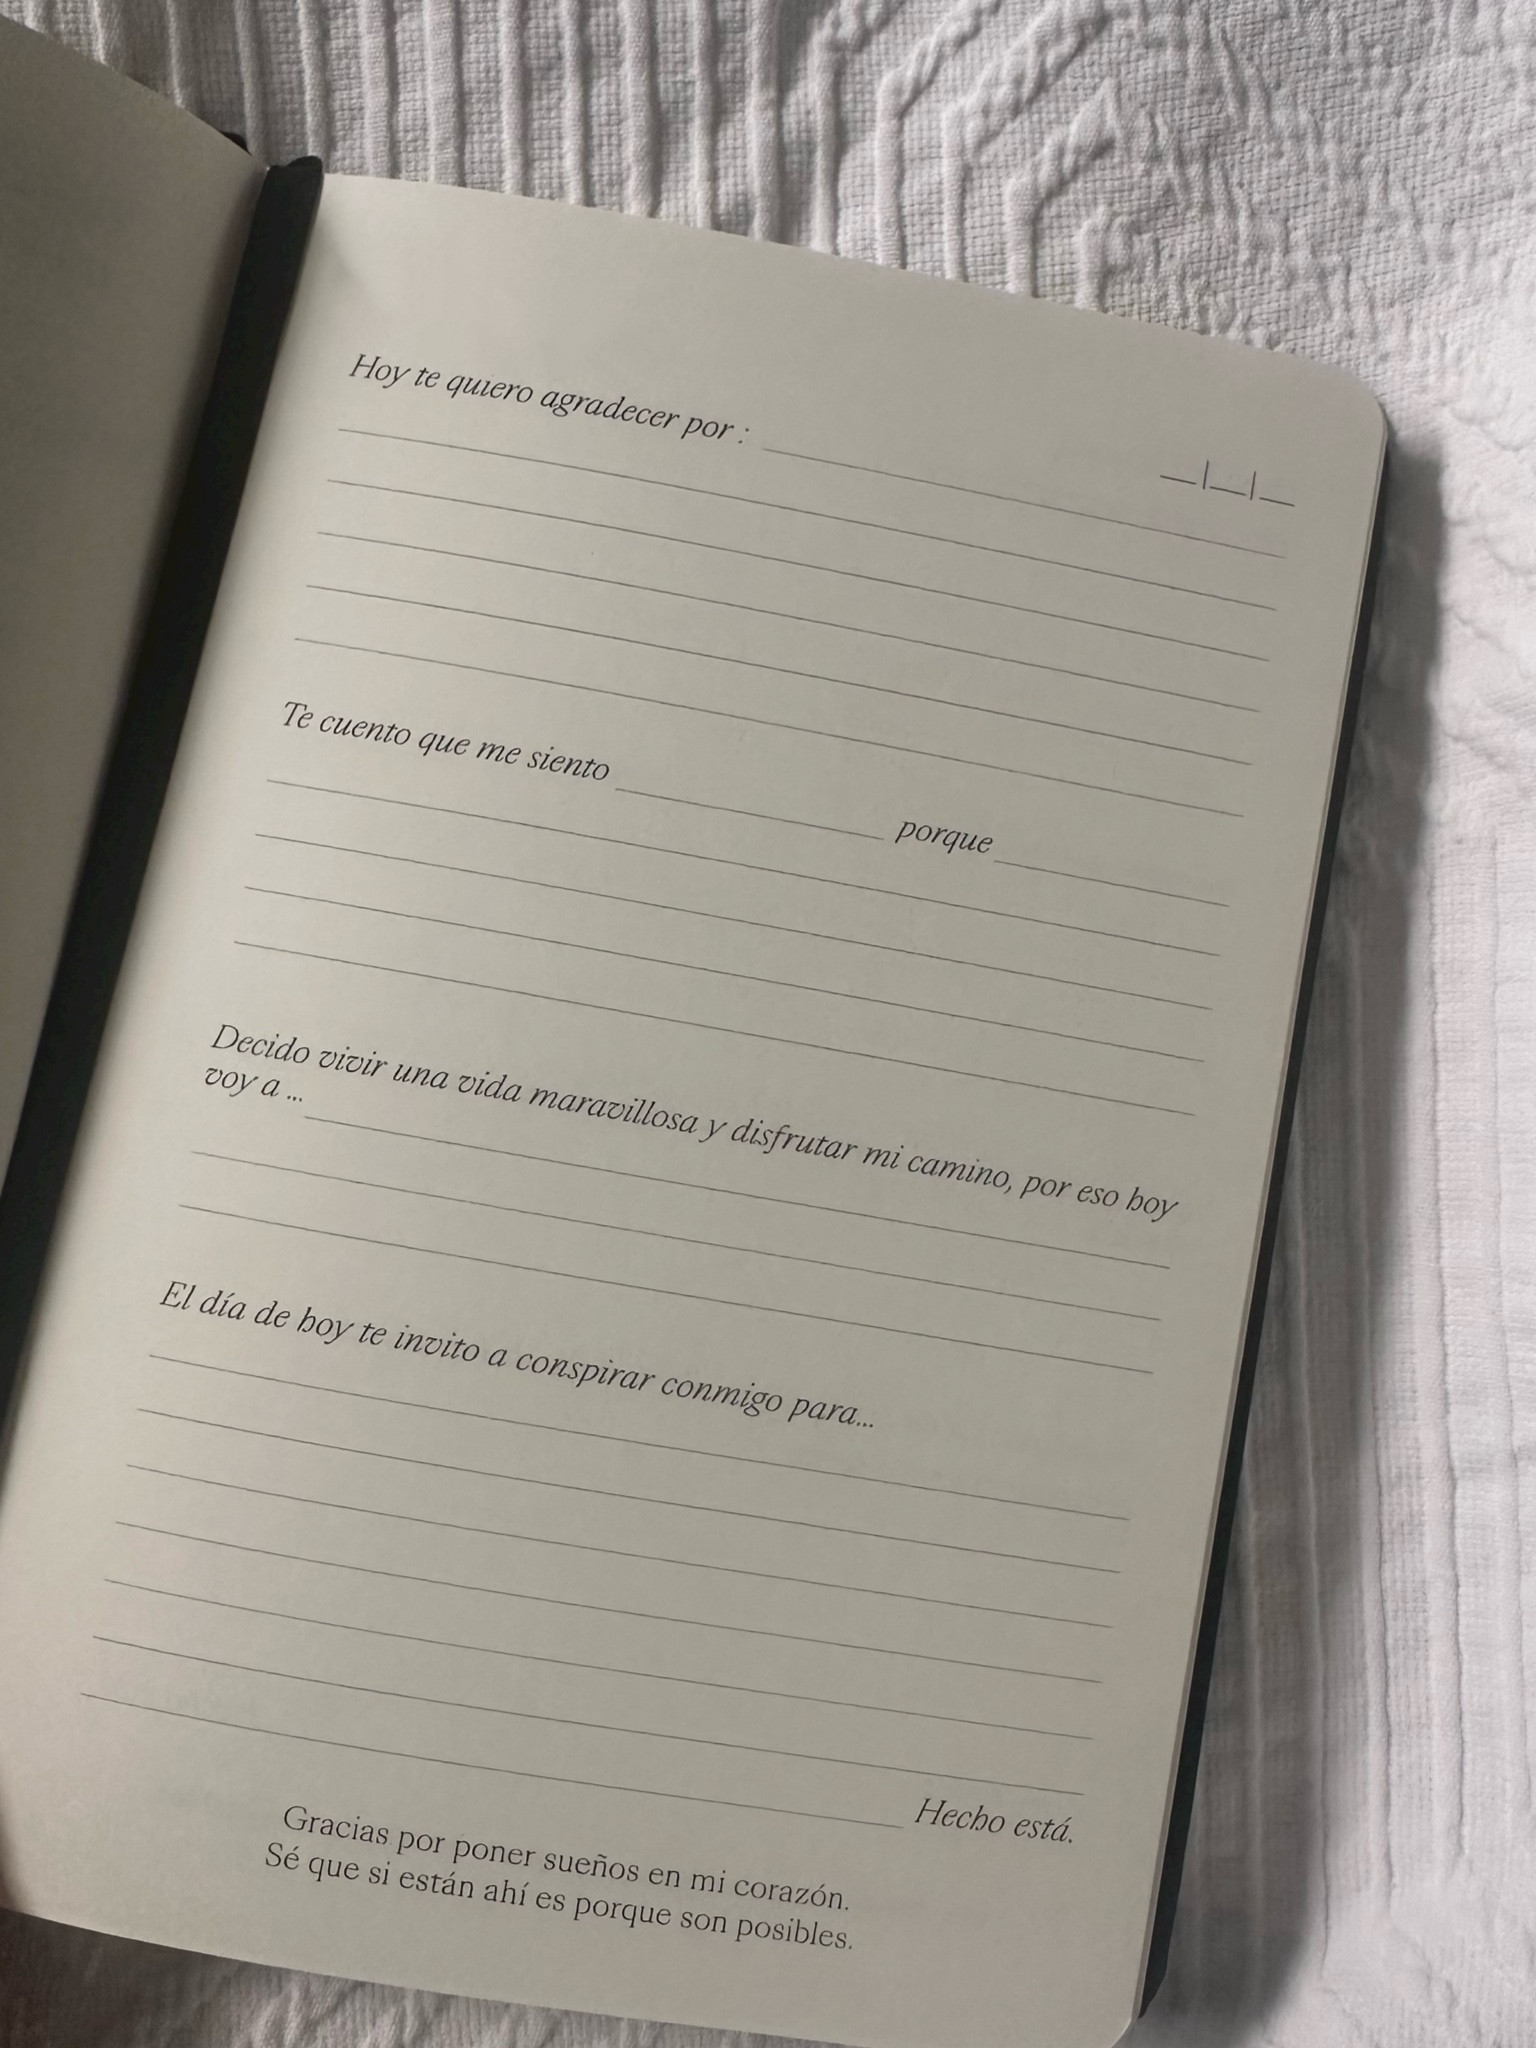 __|__|__
Hoy te quiero agradecer por :
Te cuento que me siento ____________ porque
Decido vivir una vida maravillosa y disfrutar mi camino, por eso hoy
voy a ...
El día de hoy te invito a conspirar conmigo para...
Hecho está.
Gracias por poner sueños en mi corazón.
Sé que si están ahí es porque son posibles.